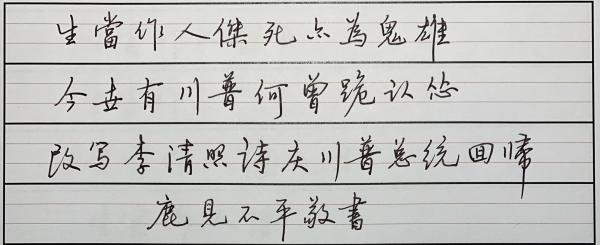 生當作人傑死亦為鬼雄
今世有川普何曾跪认怂
改写李清照詩庆川普总统回歸
鹿見不平敬書